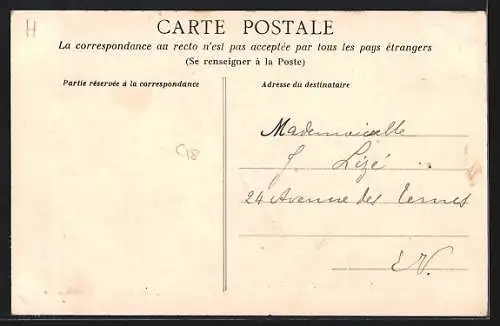 H
CARTE POSTALE
La correspondance au recto n'est pas acceptée par tous les pays étrangers
(Se renseigner à la Poste)
Partie réservée à la correspondance
Adresse du destinataire
C18
Mademoiselle
J. Lizé
24 Avenue des Ternes
E.V.